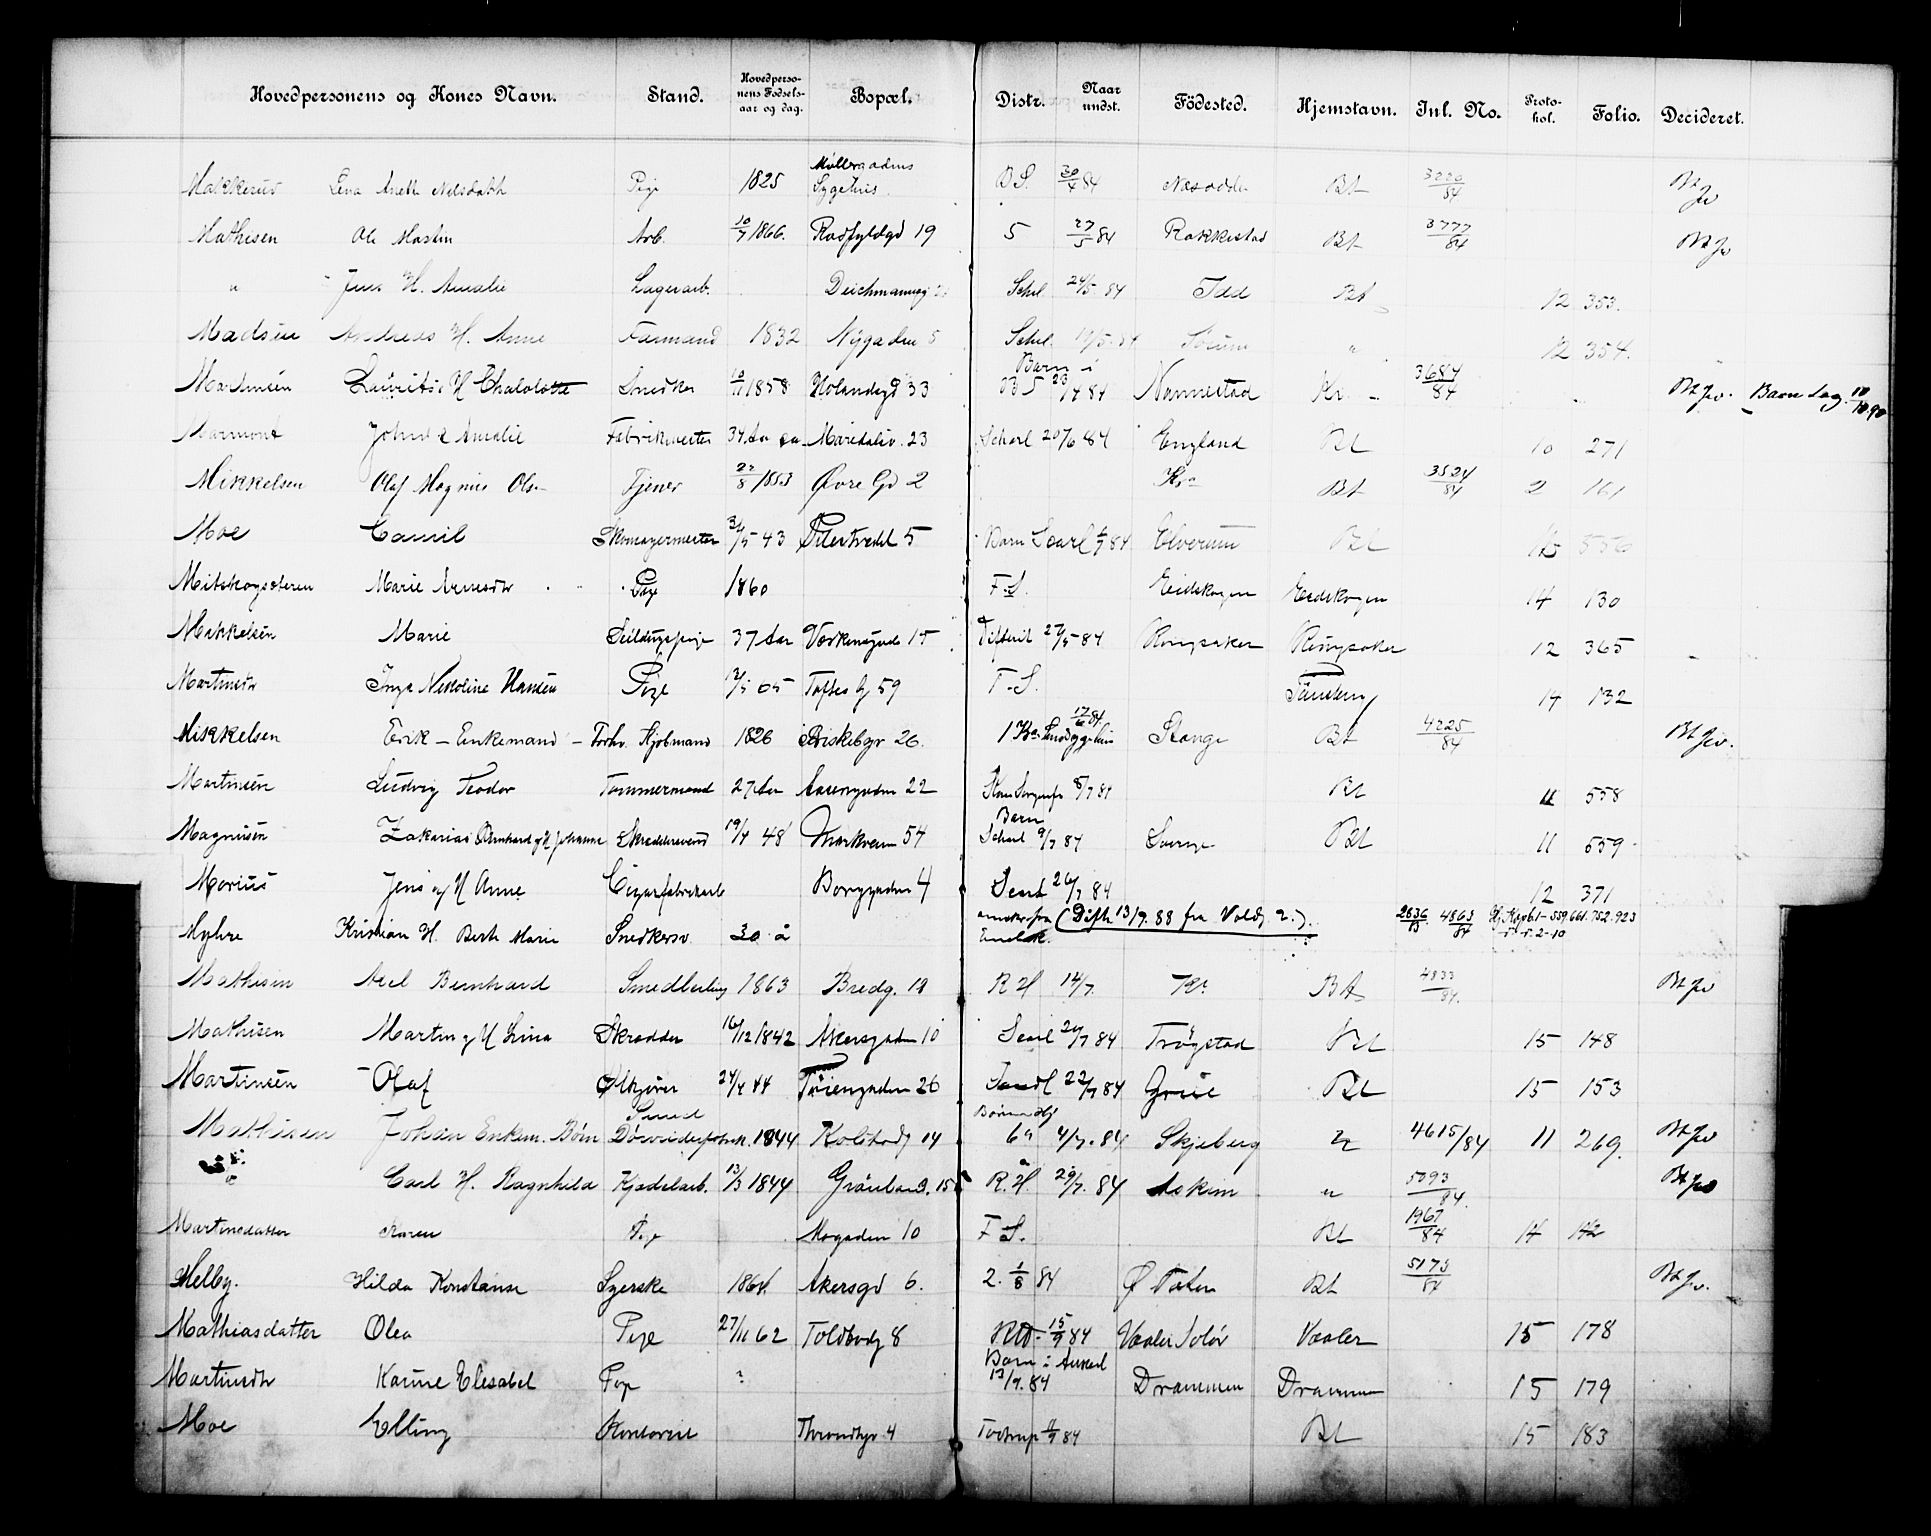 Hovedpersonens og Kones Navn. Stand. Hovedpersonens Fødselsaar og dag. Bopæl. Distr. Naar undst. Födested. Hjemstavn. Inl. No. Protokol. Folio. Decideret.
Makkerud Lena Aneth Pige 1825 Møllergadens Sygehus B S. 30/4 84 Næsodden Bt 84 Bt Jv
Mathisen Ole Martin Arb. 10/7 1866. Raadhusgd 19 5 27/5 84 Rakkestad Bt 3777/84 Bt Jv
" Jens H. Amalie Lagerarb. Deichmannsg Schl. 24/5 84 Idd Bt 12 353.
Madsen Andreas H. Anne Farmand 1832 Nygaden 5 Schl. /5 84 Sørum " 12 354.
Martinsen Laurits H Chalolotte Snedker 10/11 1858 Holandsgd 33 Barn i B 5 23/4 84 Nannestad Kr. 3684/84 Bt Jv. Barn dag. 10/10 90
Marmont John & Amalie Fabrikmester 34 Aar ca Maridalsv. 23 Scharl 20/6 84 England Bt 10 271
Mikkelsen Olaf Magnus Olsen Tjener 22/8 1853 Øvre Gd 2 Kra Bt 3524/84 2 161
Moe Camil Skomagermester 31/5 43 Pilestredet 5 Barn Scarl 6/7 84 Elverum Bt 15 856
Mitskogsæteren Marie Arnesdtr Pige 1860 F. S. Eidskogen Eidskogen 14 130
Mikkelsen Marie Seildugspige 37 Aar Værkensgade 15 Difterit 27/5 84 Ringsaker Ringsaker 12 365
Martinsdtr Inga Nikoline Hansen Pige 12/5 65 Toftes G 59 F. S. Tönsberg 14 132
Mikkelsen Erik – Enkemand – Forhv. Kjøbmand 1826 Briskebyv 26. 1 Kr. Sindsygehus 17/6 84. Stange Bt 4225/84 Bt Jv.
Martinsen Ludvig Teodor Tømmermand 27 Aar Aasengaden 22 8/7 84 Bt 11 558
Magnusen Zakarias Bernhard og H Johanne Skreddersvend 19/4 48 Markveien 54 Barn Scharl 9/7 84 Sverige Bt 11 559
Marius Jens og H Anne Cigarfabrikarb Borggaden 4 Scarl 26/7 84 12 371
Myhre Kristian H. Berth Marie Snedkersv. 30 å (Difth 13/9. 88 fra Voldg 2.). 4863/84 559. 661. 752. 923
Mathisen Axel Bernhard Smedlærling 1863 Bredg. 19 R H 14/7. Kr. Bt 4833/84. Bt Jv
Mathisen Martin og H Lina Skrædder 16/12 1842 Akersgaden 10 Scarl 24/7 84 Trøgstad Bt 15 148
Martinsen Olaf Ølkjører 24/4 44 Tøiengaden 26 Scarl 22/7 84 Grue Bt 15 153
Mathisen Johan Enkem. Børn Smed 1844 Kolstadg 14 6a 4/7. 84 Skjeberg " 4615/84 11 269. Bt Jv
" Carl H. Ragnhild Kjedelarb. 13/3 1844 Grönland. 15 R. H. 29/7. 84 Askim " 5093/84. Bt Jv
Martinsdatter Karen Pige Mogaden 10 F S. Bt 1967/84 14 142
Melby. Hilda Konstanse Syerske 1864 Akersgd 6. 2. 1/8 84 Ø Toten Bt 5173/84 Bt Jv.
Mathiasdatter Olea Pige 27/11 62 Toldbodg 8 15/9 84 Vaaler Solör Vaaler 15 178
Martinsdtr Karine Elesabel Pige ? Barn i 13/9. 84 Drammen Drammen 15 179
Moe Elling Kontorist Throndhjv. 4 Tostrup 11/9 84 Bt 15 183